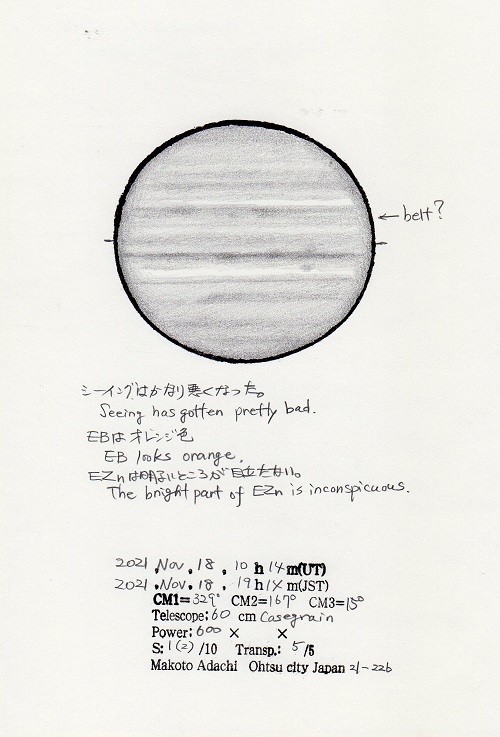 ← belt?
シーイングはかなり悪くなった。
Seeing has gotten pretty bad.
EBはオレンジ色
EB looks orange.
EZnは明るいところが目立たない。
The bright part of EZn is inconspicuous.
2021.Nov.18.10h14m(UT)
2021.Nov.18.19h14m(JST)
CM1=329° CM2=167° CM3=
Telescope:60 cm Casegrain
Power:600 × ×
S:1(2)/10 Transp.:5/5
Makoto Adachi Ohtsu city Japan 21-22b